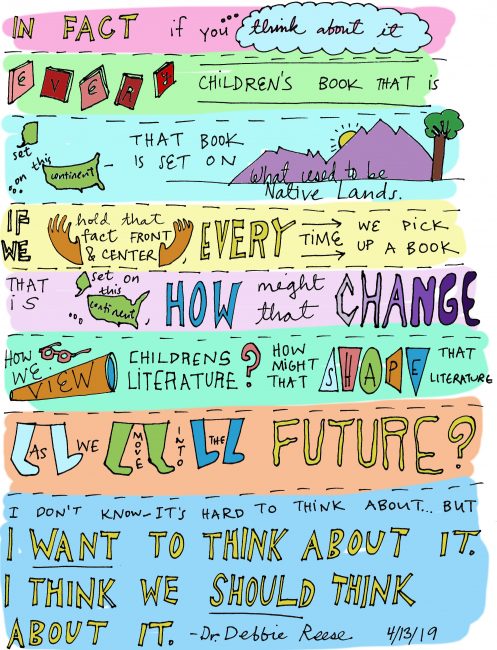 IN FACT if you... think about it
EVERY CHILDREN'S BOOK THAT is
set ...on this continent THAT BOOK
IS SET ON what used to be
Native Lands.
IF WE hold that fact FRONT & CENTER, EVERY TIME WE PICK UP A BOOK
THAT IS ... set on this continent, HOW might that CHANGE
HOW WE VIEW CHILDRENS LITERATURE? HOW MIGHT THAT SHAPE THAT LITERATURE
AS WE MOVE INTO THE FUTURE?
I DON'T KNOW-IT'S HARD TO THINK ABOUT... BUT
I WANT TO THINK ABOUT IT.
I THINK WE SHOULD THINK
ABOUT IT. -Dr. Debbie Reese 4/13/19